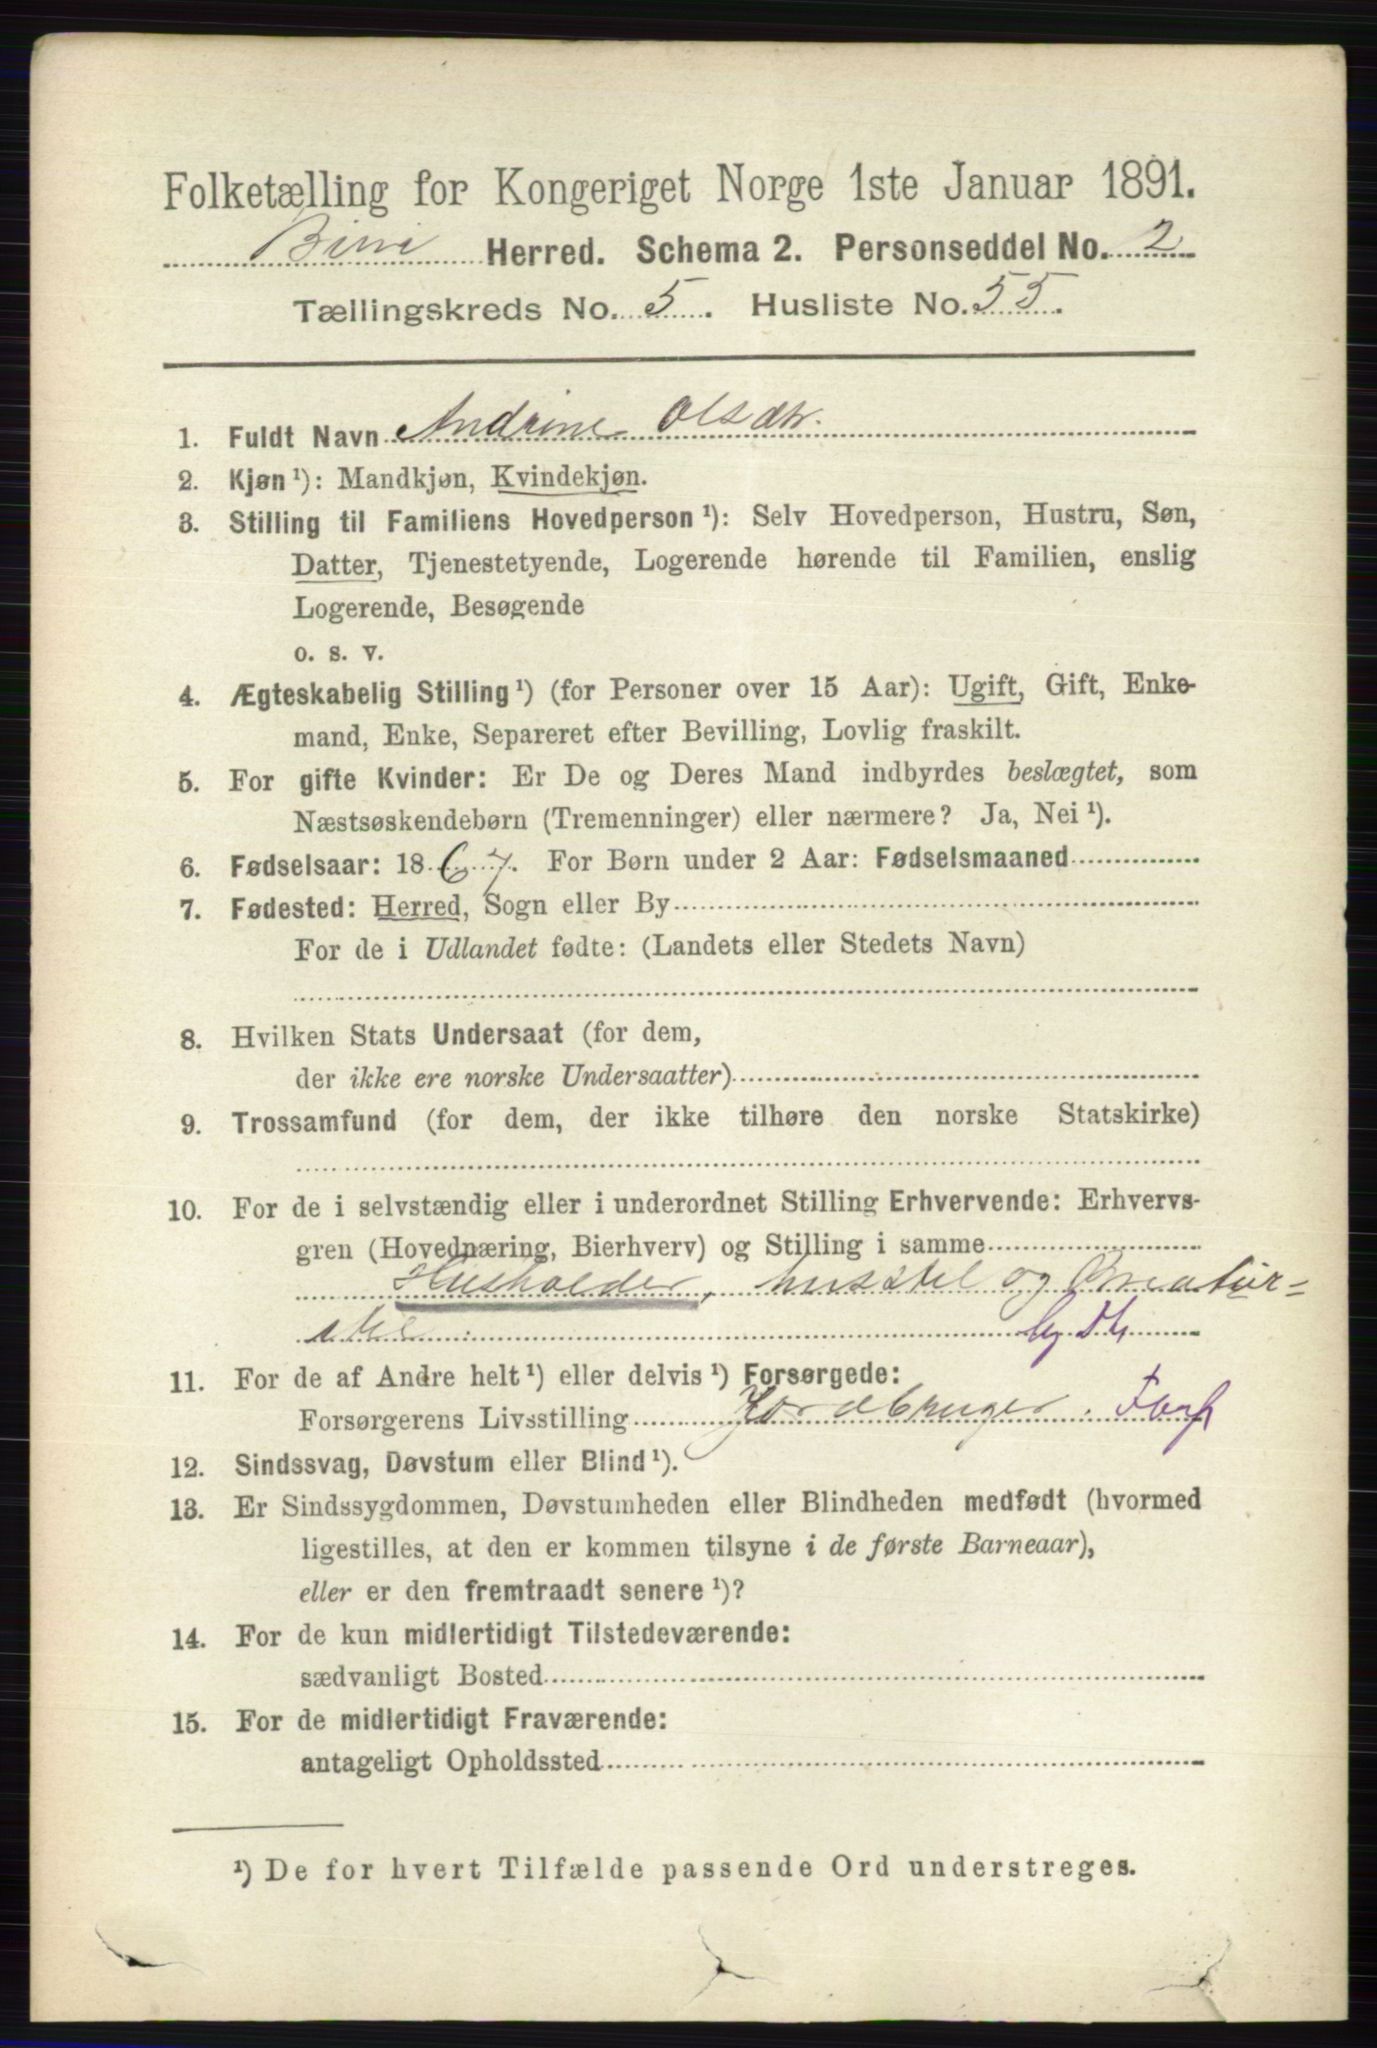 Folketælling for Kongeriget Norge 1ste Januar 1891.
Birri Herred. Schema 2. Personseddel No. 2
Tællingskreds No. 5. Husliste No. 55.
1. Fuldt Navn Andrine Olsdtr.
2. Kjøn ¹): Mandkjøn, Kvindekjøn.
3. Stilling til Familiens Hovedperson ¹): Selv Hovedperson, Hustru, Søn,
Datter, Tjenestetyende, Logerende hørende til Familien, enslig
Logerende, Besøgende
o. s. v.
4. Ægteskabelig Stilling ¹) (for Personer over 15 Aar): Ugift, Gift, Enke-
mand, Enke, Separeret efter Bevilling, Lovlig fraskilt.
5. For gifte Kvinder: Er De og Deres Mand indbyrdes beslægtet, som
Næstsøskendebørn (Tremenninger) eller nærmere? Ja, Nei ¹).
6. Fødselsaar: 1867. For Børn under 2 Aar: Fødselsmaaned
7. Fødested: Herred, Sogn eller By
For de i Udlandet fødte: (Landets eller Stedets Navn)
8. Hvilken Stats Undersaat (for dem,
der ikke ere norske Undersaatter)
9. Trossamfund (for dem, der ikke tilhøre den norske Statskirke)
10. For de i selvstændig eller i underordnet Stilling Erhvervende: Erhvervs-
gren (Hovednæring, Bierhverv) og Stilling i samme
Husholder, husstel og Creatur-
stel.
11. For de af Andre helt ¹) eller delvis ¹) Forsørgede:
Forsørgerens Livsstilling Jordbruger. Forp
12. Sindssvag, Døvstum eller Blind ¹).
13. Er Sindssygdommen, Døvstumheden eller Blindheden medfødt (hvormed
ligestilles, at den er kommen tilsyne i de første Barneaar),
eller er den fremtraadt senere ¹)?
14. For de kun midlertidigt Tilstedeværende:
sædvanligt Bosted
15. For de midlertidigt Fraværende:
antageligt Opholdssted
¹) De for hvert Tilfælde passende Ord understreges.